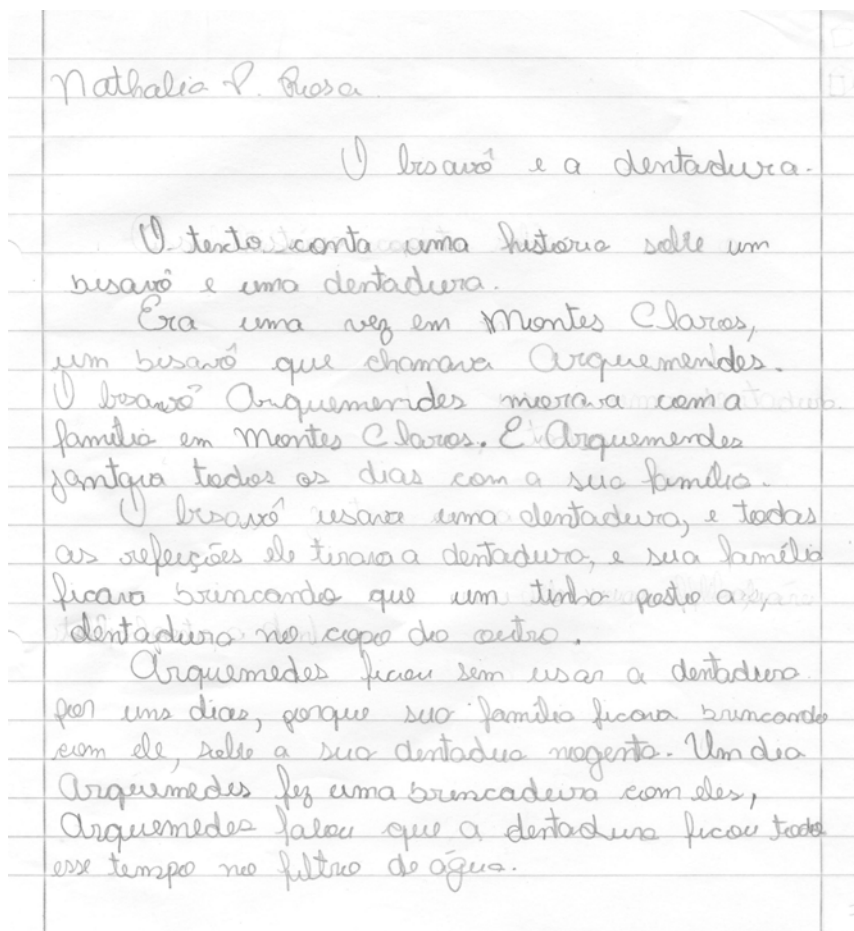 Nathalia P. Rosa.
O bisavô e a dentadura.
O texto conta uma história sobre um
bisavô e uma dentadura.
Era uma vez em Montes Claros,
um bisavô que chamava Arquemendes.
O bisavô Arquemendes morava com a
família em Montes Claros. E Arquemendes
jantava todos os dias com a sua família.
O bisavô usava uma dentadura, e todas
as refeições ele tirava a dentadura, e sua família
ficava brincando que um tinha posto a
dentadura no copo do outro.
Arquemedes ficou sem usar a dentadura
por uns dias, porque sua família ficava brincando
com ele, sobre a sua dentadua nogenta. Um dia
Arquemedes fez uma brincadeira com eles,
Arquemedes falou que a dentadura ficou todo
esse tempo no filtro de água.